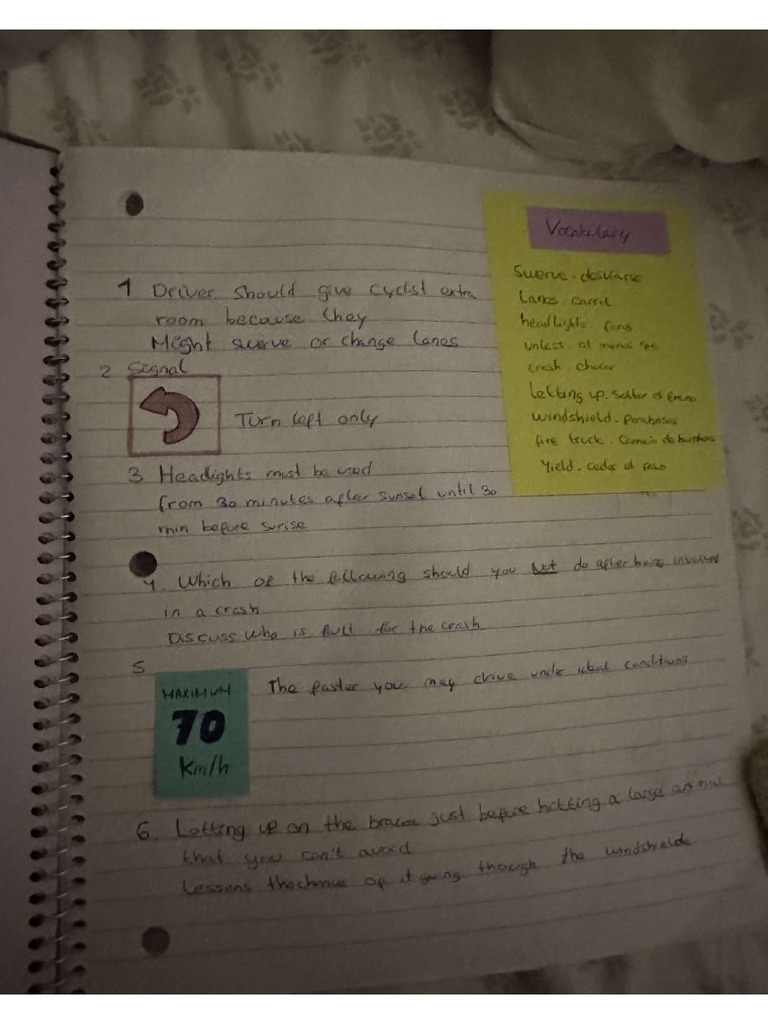 1 Driver should give cyclist extra
room because they
Might swerve or change lanes
2 Signal
Turn left only
3 Headlights must be used
from 30 minutes after sunset until 30
min before surise
4. Which of the following should you Not do after being involved
in a crash
Discuss who is full for the crash
5
MAXIMUM
70
Km/h
The faster you may drive under ideal conditions
6. Letting up on the brace just before hitting a large animal
that you can't avoid
Lessens the chance of it going though the windshielde
Vocabulary
Swerve - desviarse
Lanes - carril
headlights - faros
unless - al menos que
crash - chocar
Letting up - soltar el freno
windshield - parabrisas
fire truck - Camión de bomberos
Yield - ceder el paso